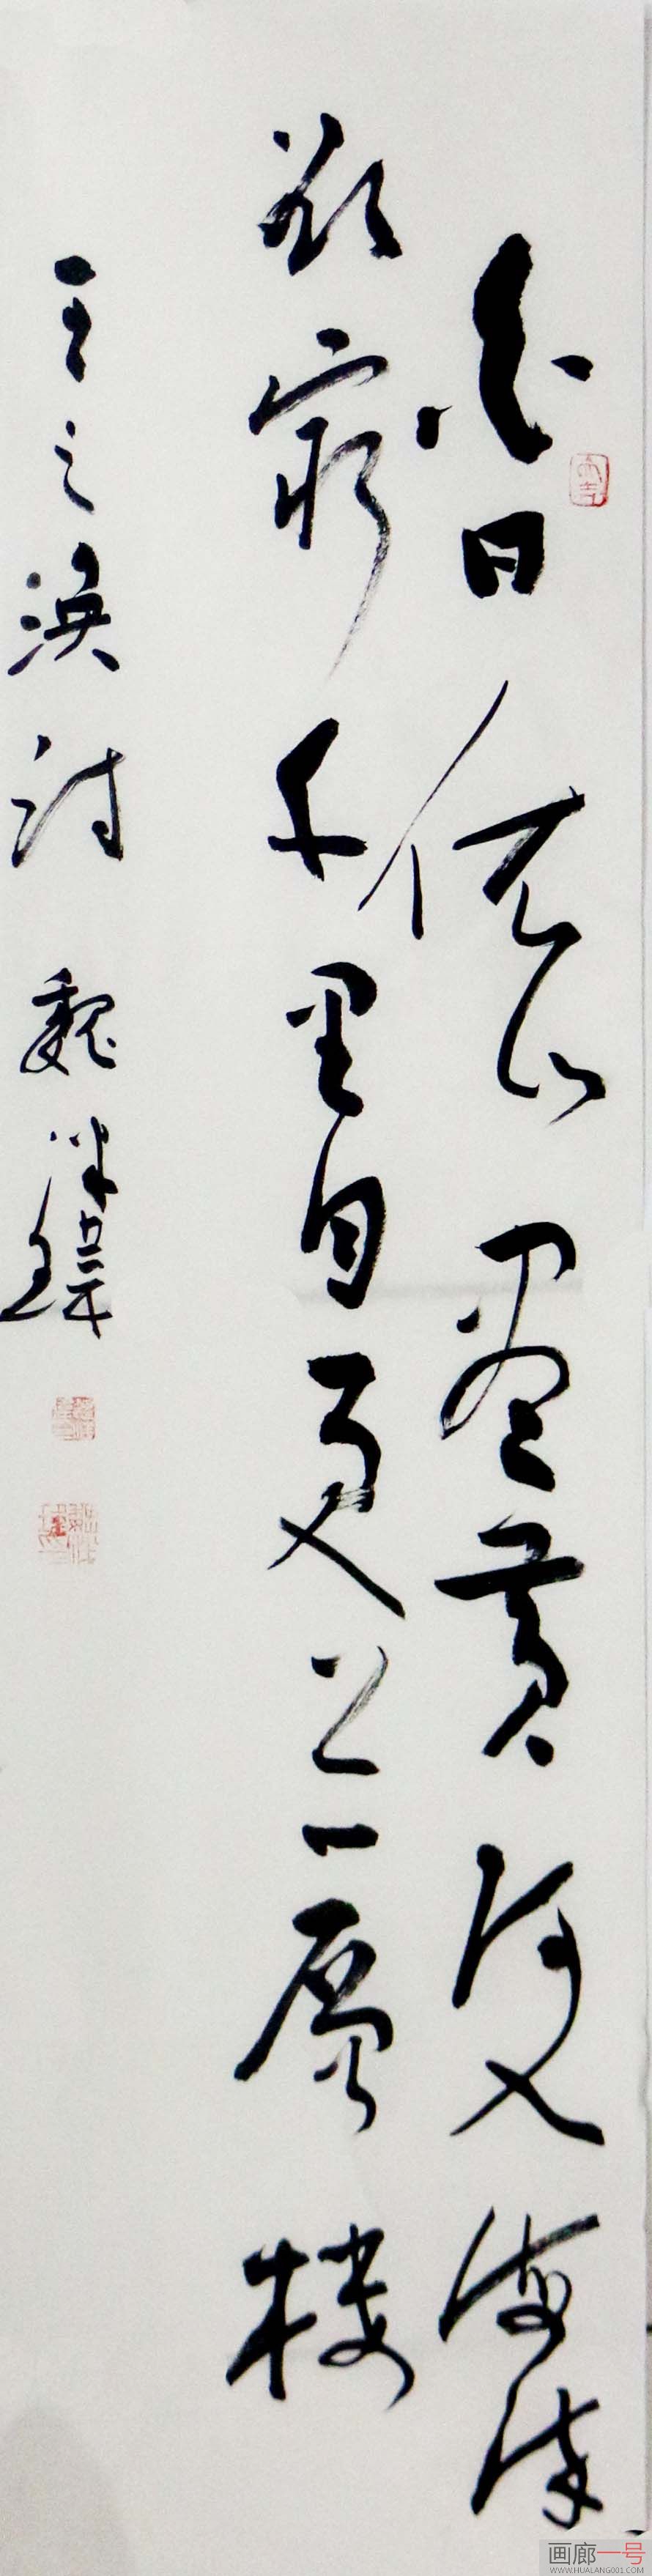 白日依山盡黄河入海流
欲窮千里目更上一層樓
王之渙詩 魏
画廊一号
WWW.HUALANG001.COM